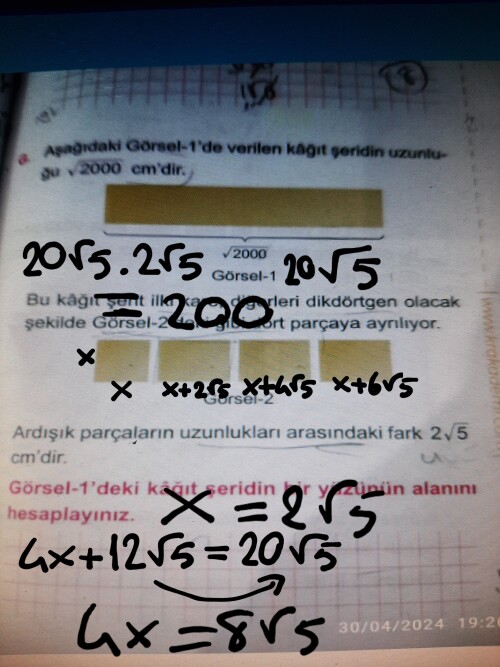 8
6. Aşağıdaki Görsel-1'de verilen kâğıt şeridin uzunlu-
ğu √2000 cm'dir.
√2000
20√5.2√5
20√5
Görsel-1
= 200
Bu kâğıt şerit ilki kare, diğerleri dikdörtgen olacak
şekilde Görsel-2'deki gibi dört parçaya ayrılıyor.
x
x x+2√5 x+4√5 x+6√5
Görsel-2
Ardışık parçaların uzunlukları arasındaki fark 2√5
cm'dir.
Görsel-1'deki kâğıt şeridin bir yüzünün alanını
hesaplayınız.
x = 2√5
4x+12√5=20√5
4x=8√5
30/04/2024 19:26